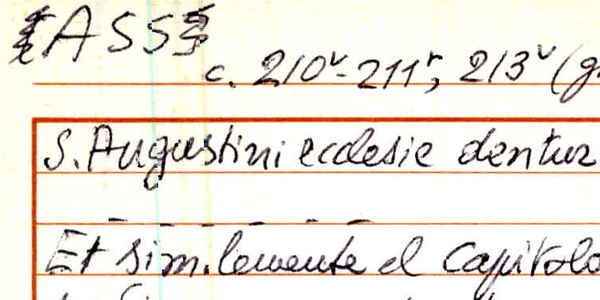 ASSS
c. 210v-211r, 213v (g
S. Augustini ecclesie dentur
Et similemente el Capitolo